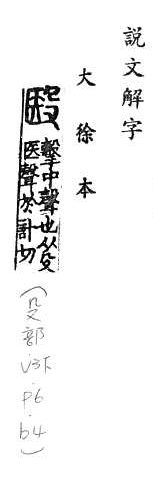 説文解字
大徐本
殹
擊中聲也从殳
医聲於計切
(殳部 V3下.P6.b4)